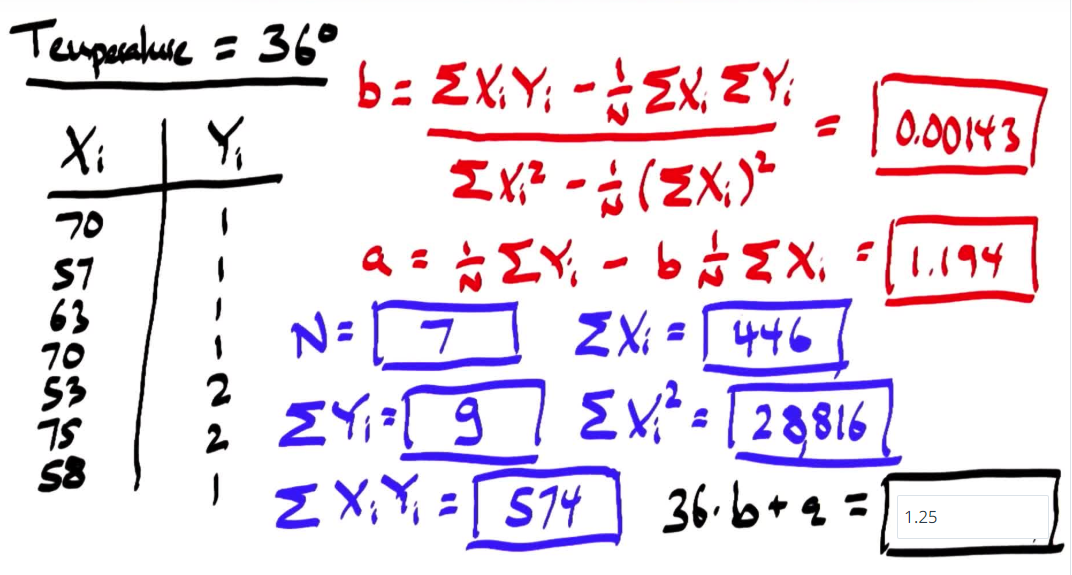 Temperature = 36°
Xi Yi
70 1
57 1
63 1
70 1
53 2
75 2
58 1
b = ΣXiYi - 1/N ΣXi ΣYi / ΣXi² - 1/N (ΣXi)² = 0.00143
a = 1/N ΣYi - b 1/N ΣXi = 1.194
N = 7 ΣXi = 446
ΣYi = 9 ΣXi² = 28,816
ΣXiYi = 574 36·b + a = 1.25